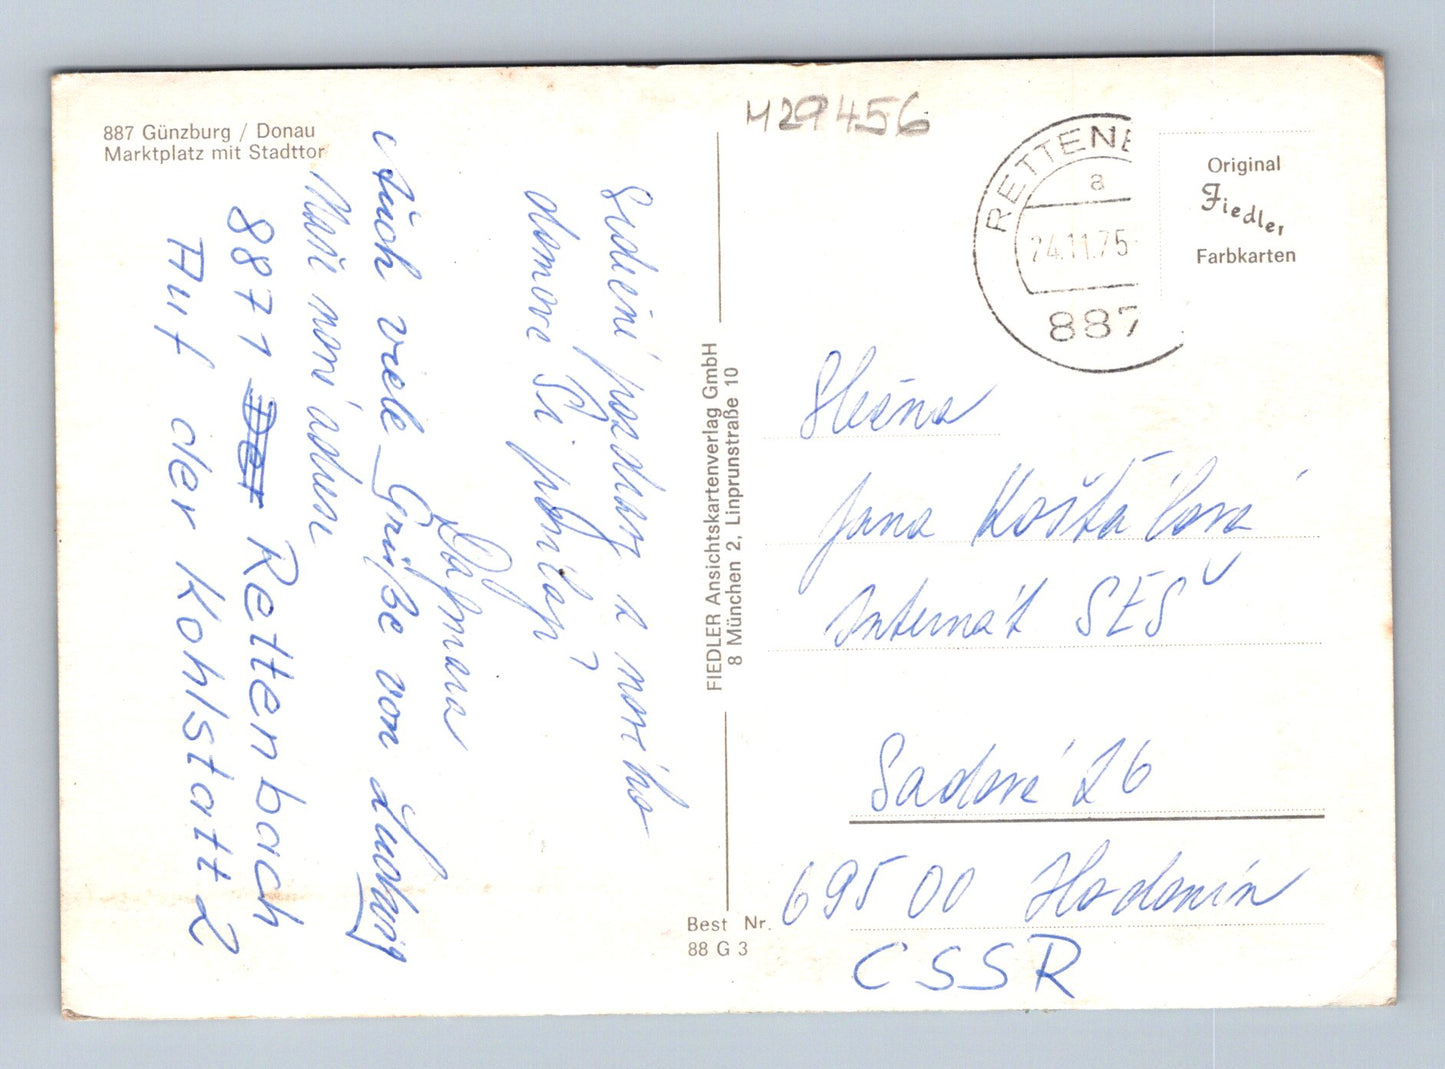 887 Günzburg / Donau
Marktplatz mit Stadttor
Srdečný pozdrav z nového
domova Ti posílají
Dagmara
Auch viele Grüße von Ludwig
Naše nová adresa
8871 Rettenbach
Auf der Kohlstatt 2
FIEDLER Ansichtskartenverlag GmbH
8 München 2, Linprunstraße 10
Best Nr.
88 G 3
M29456
RETTENB
a
24.11.75
887
Original
Fiedler
Farbkarten
Slečna
Jana Košťálová
Internát SEŠ
Sadová 26
695 00 Hodonín
CSSR